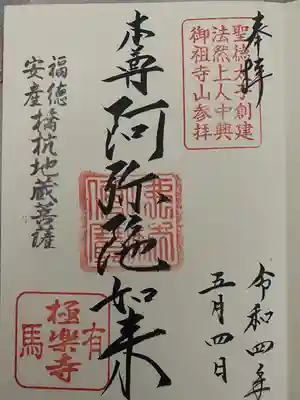 奉拝
聖徳太子創建
法然上人中興
御祖寺山参拝
本尊
阿弥陀如来
福徳
安産
橋杭地蔵菩薩
令和四年
五月四日
有馬
極楽寺